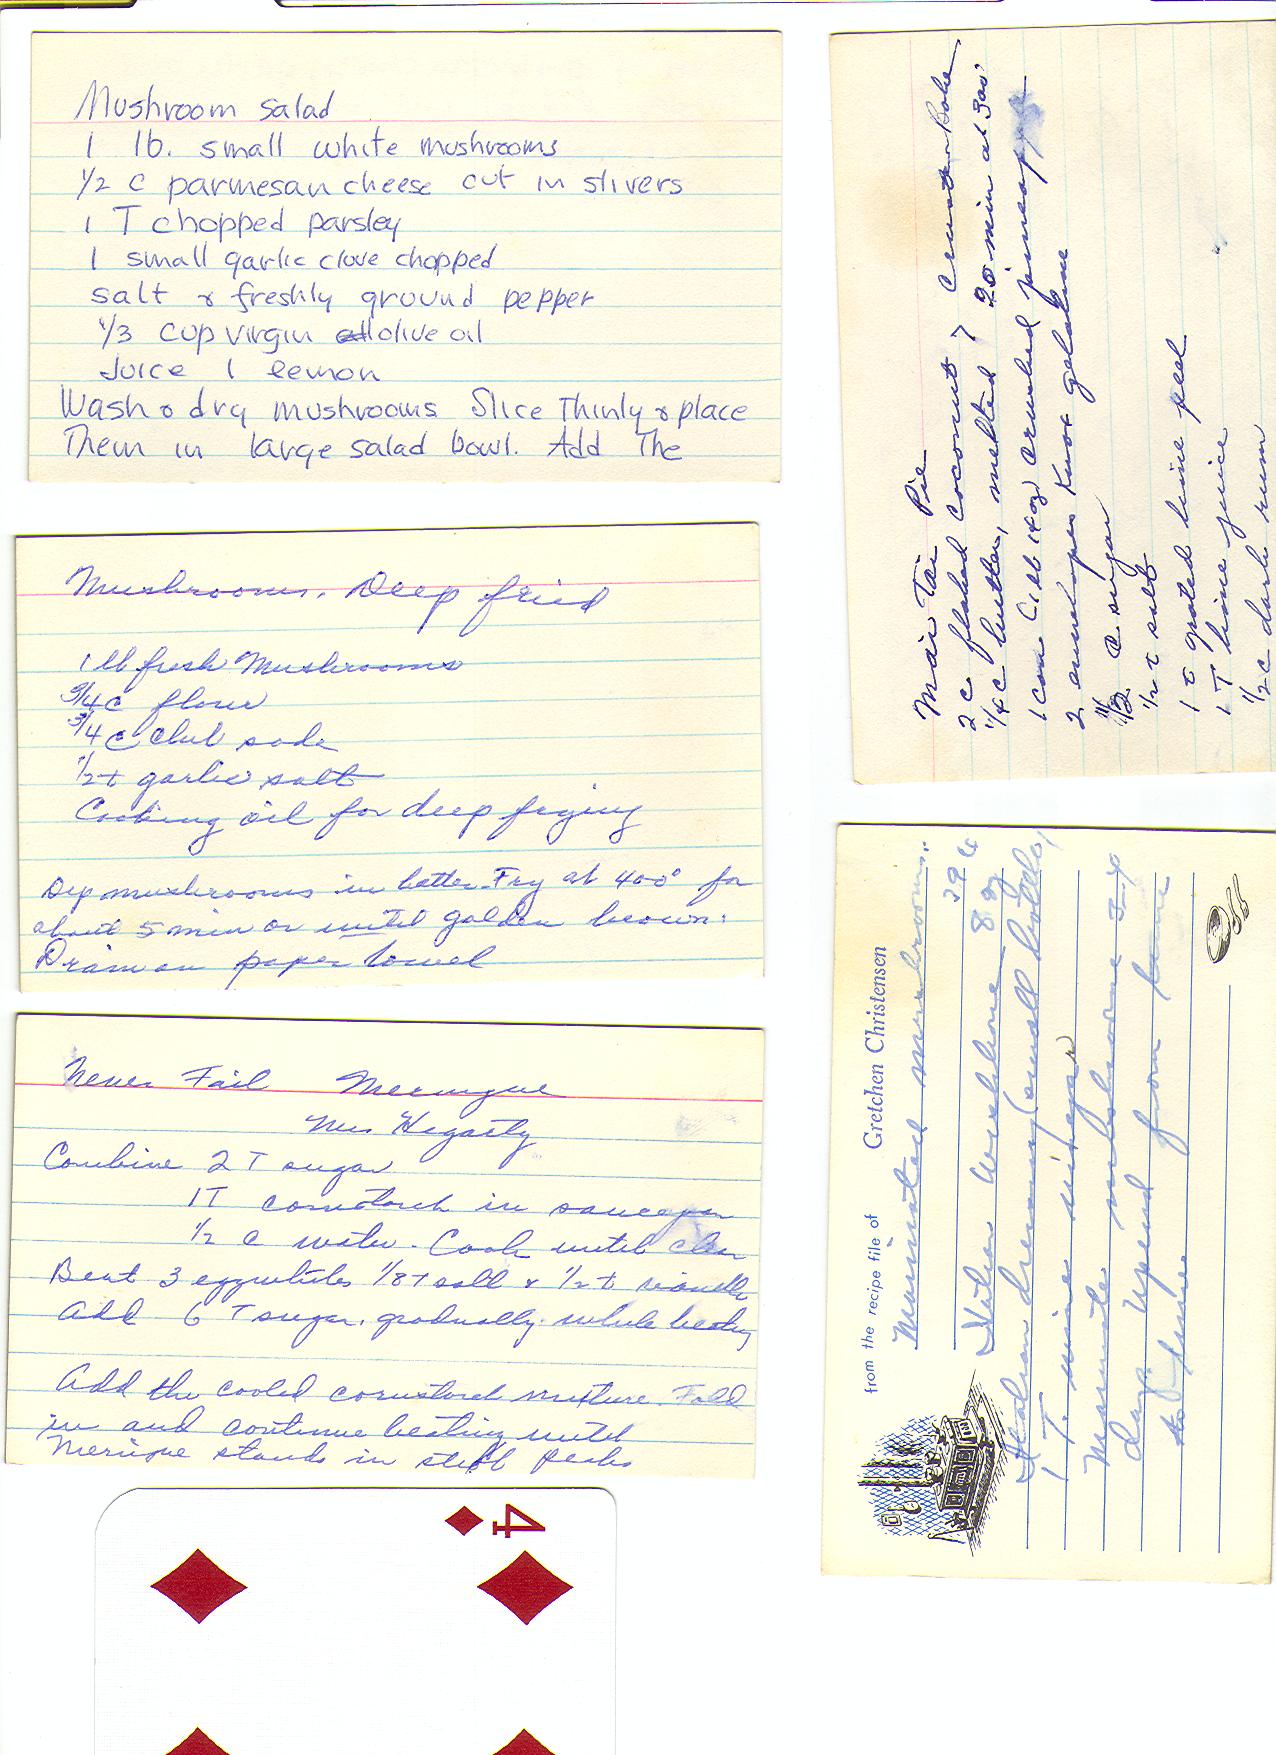 Mushroom salad
1 lb. small white mushrooms
1/2 c parmesan cheese cut in slivers
1 T chopped parsley
1 small garlic clove chopped
salt & freshly ground pepper
1/3 cup virgin olive oil
Juice 1 lemon
Wash & dry mushrooms Slice Thinly & place
Them in large salad bowl. Add The
Mushrooms, Deep fried
1 lb fresh Mushrooms
3/4 c flour
3/4 c Club soda
1/2 t garlic salt
Cooking oil for deep frying
Dip mushrooms in batter. Fry at 400° for
about 5 min or until golden brown.
Drain on paper towel
Never Fail Meringue
Mrs Hegarty
Combine 2 T sugar
1T cornstarch in saucepan
1/2 c water. Cook until clear
Beat 3 eggwhites 1/8 t salt & 1/2 t vanilla
Add 6 T sugar, gradually while beating
Add the cooled cornstarch mixture. Fold
in and continue beating until
merique stands in stiff peaks
4
Mai Tai Pie
2 c flaked coconut > Crust Bake
1/4 c butter, melted 20 min at 300°
1 can (1 lb 14 oz) crushed pineapple
2 envelopes Knox gelatine
1/2 c sugar
1/2 t salt
1 t grated lime peel
1 T lime juice
1/2 c dark rum
from the recipe file of Gretchen Christensen
Marinated mushrooms
394
Italian Wishbone 8 oz
Italian dressing (small bottle)
1 T. wine vinegar
Marinate mushrooms 3-4
days upend from time
to time.